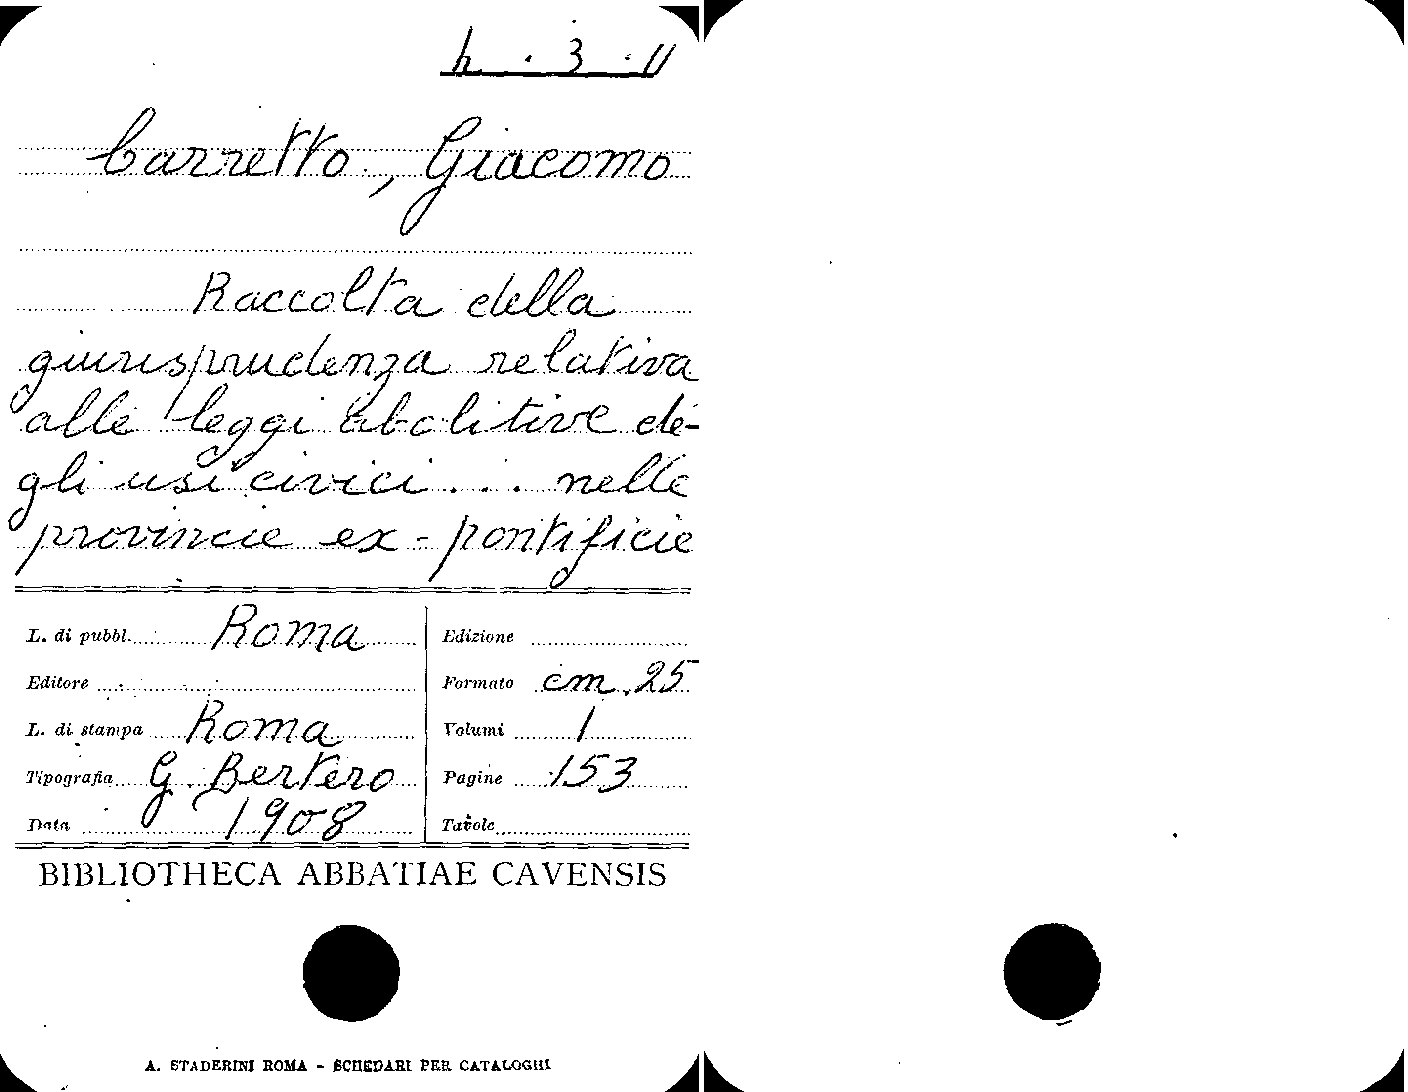 h . 3 . 11
Carretto, Giacomo
Raccolta della
giurisprudenza relativa
alle leggi abolitive de-
gli usi civici . . . nelle
provincie ex-pontificie
L. di pubbl. Roma
Editore
L. di stampa Roma
Tipografia G. Bertero
Data 1908
Edizione
Formato cm. 25
Volumi 1
Pagine 153
Tavole
BIBLIOTHECA ABBATIAE CAVENSIS
A. STADERINI ROMA - SCHEDARI PER CATALOGHI